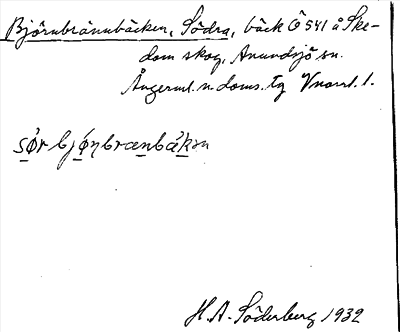 Björnbrännbäcken, Södra, bäck Ö 541 å Ske-
dom skog, Anundsjö sn.
Ångerml. n. doms. tg Vnorrl. l.
sø̀r bjǿṇbrænbä́kən
H. A. Söderberg 1932